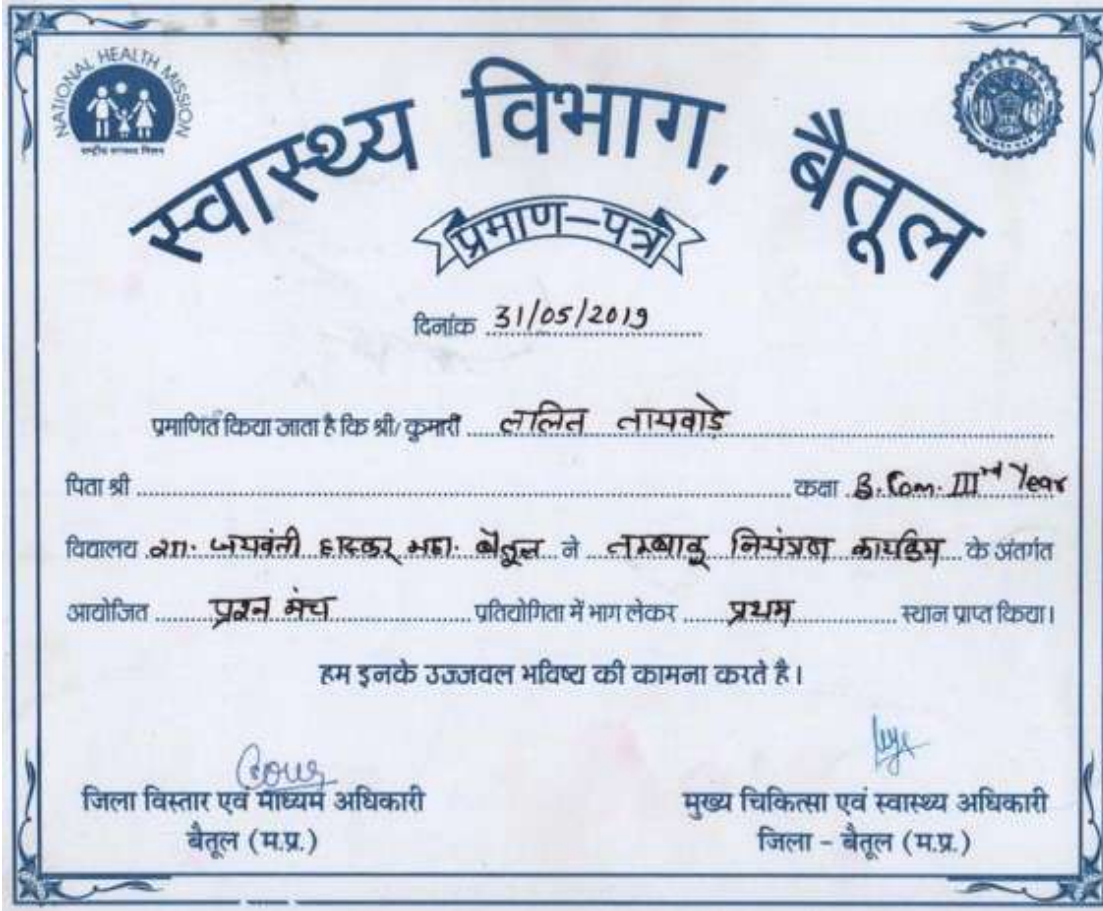 NATIONAL HEALTH MISSION
राष्ट्रीय स्वास्थ्य मिशन
स्वास्थ्य विभाग, बैतूल
प्रमाण-पत्र
दिनांक 31/05/2019
प्रमाणित किया जाता है कि श्री/कुमारी ललित तायवाडे
पिता श्री कक्षा B.Com. IIIrd Year
विद्यालय शा. जयवंती हाक्सर महा. बैतूल ने तम्बाकू नियंत्रण कार्यक्रम के अंतर्गत
आयोजित प्रश्न मंच प्रतियोगिता में भाग लेकर प्रथम स्थान प्राप्त किया।
हम इनके उज्जवल भविष्य की कामना करते है।
जिला विस्तार एवं माध्यम अधिकारी
बैतूल (म.प्र.)
मुख्य चिकित्सा एवं स्वास्थ्य अधिकारी
जिला - बैतूल (म.प्र.)